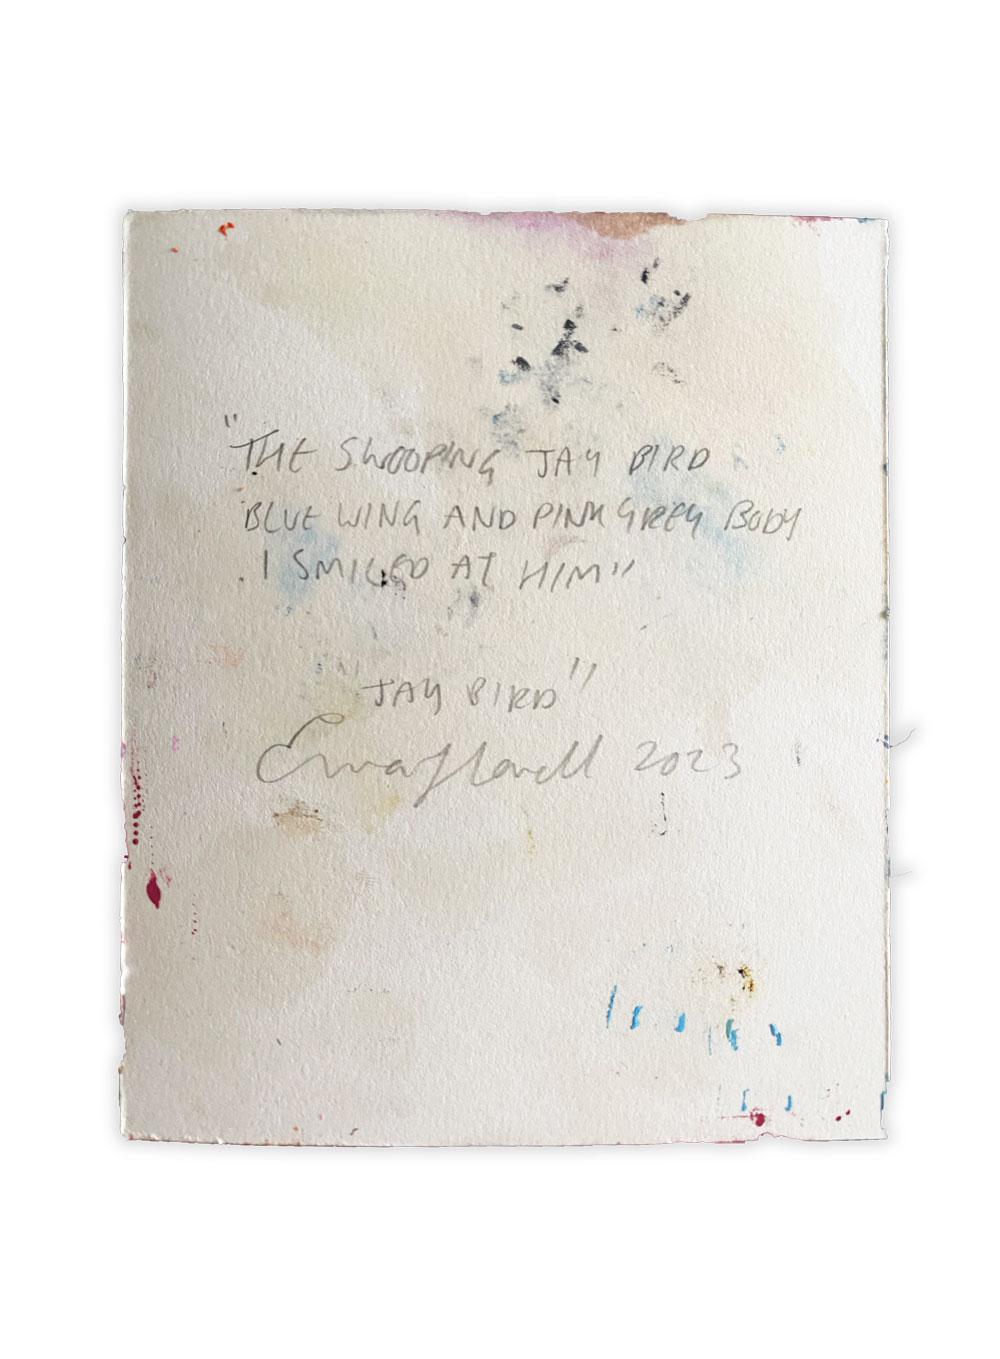 "THE SWOOPING JAY BIRD
BLUE WING AND PINK GREY BODY
. I SMILED AT HIM"
JAY BIRD"
2023